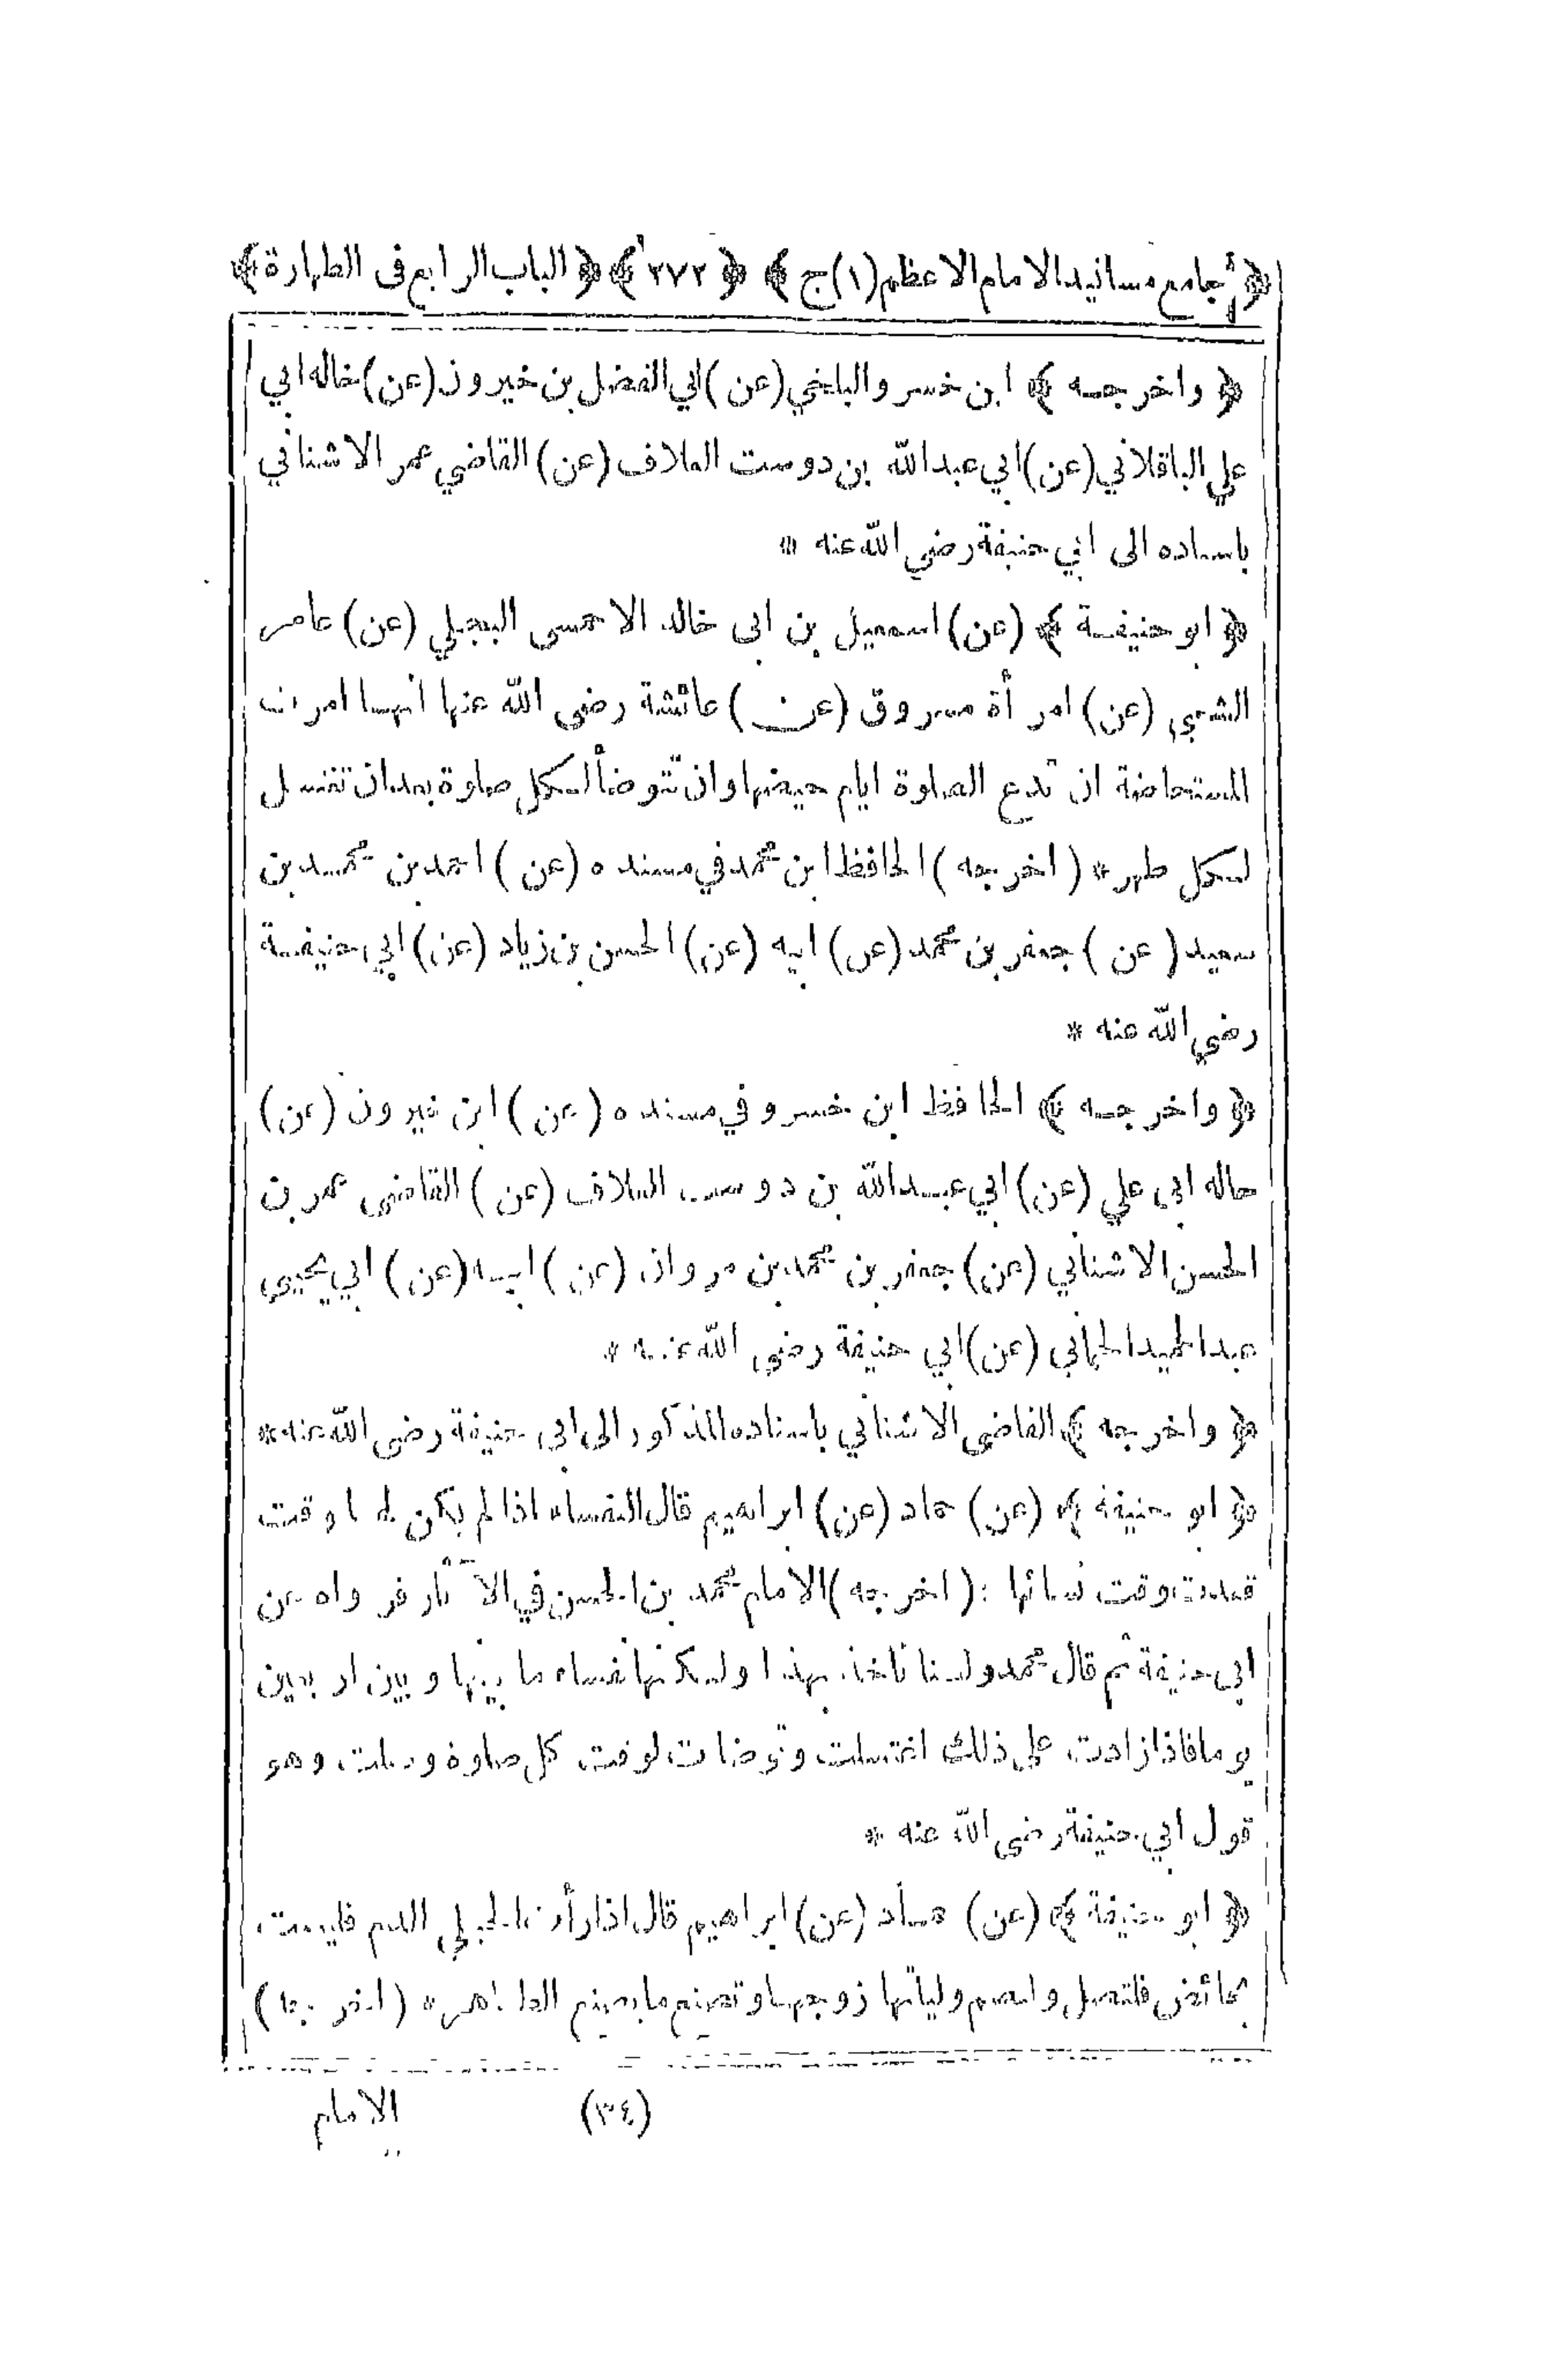 ﴿ جامع مسانيد الامام الاعظم (١) ج ﴾ ﴿ ٢٧٢ ﴾ ﴿ الباب الرابع فى الطهارة ﴾
﴿ واخرجه ﴾ ابن خسرو البلخي (عن) ابي الفضل بن خيرون (عن) خاله ابي
علي الباقلاني (عن) ابي عبد الله بن دوست العلاف (عن) القاضي عمر الاشناني
باسناده الى ابي حنيفة رضي الله عنه *
﴿ ابو حنيفة ﴾ (عن) اسمعيل بن ابى خالد الاحمسى البجلي (عن) عامر
الشعبي (عن) امرأة مسروق (عن) عائشة رضى الله عنها انها امرت
المستحاضة ان تدع الصلوة ايام حيضها وان تتوضأ لكل صلوة بعد ان تغتسل
لكل طهر * (اخرجه) الحافظ ابن محمد في مسنده (عن) احمد بن محمد بن
سعيد (عن) جعفر بن محمد (عن) ابيه (عن) الحسن بن زياد (عن) ابي حنيفة
رضي الله عنه *
﴿ واخرجه ﴾ الحافظ ابن خسرو في مسنده (عن) ابن خيرون (عن)
خاله ابى علي (عن) ابي عبد الله بن دوست العلاف (عن) القاضى عمر بن
الحسن الاشناني (عن) جعفر بن محمد بن مروان (عن) ابيه (عن) ابي يحيى
عبد الحميد الحماني (عن) ابي حنيفة رضى الله عنه *
﴿ واخرجه ﴾ القاضى الاشناني باسناده المذكور الى ابى حنيفة رضى الله عنه *
﴿ ابو حنيفة ﴾ (عن) حماد (عن) ابراهيم قال النفساء اذا لم يكن لها وقت
قعدت وقت نسائها : (اخرجه) الامام محمد بن الحسن في الآثار فرواه عن
ابى حنيفة ثم قال محمد ولسنا نأخذ بهذا ولكنها نفساء ما بينها وبين اربعين
يوما فاذا زادت على ذلك اغتسلت وتوضأت لوقت كل صلوة وصلت وهو
قول ابي حنيفة رضى الله عنه *
﴿ ابو حنيفة ﴾ (عن) حماد (عن) ابراهيم قال اذا رأت الحبلى الدم فليست
بحائض فلتصل ولتصم وليأتها زوجها وتصنع ما يصنع الطاهر * (اخرجه)
(٣٤) الامام